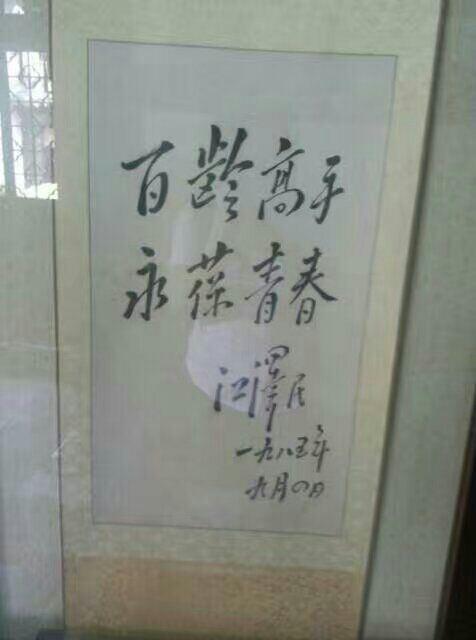 百龄高手
永葆青春
江泽民
一九八五年
九月四日